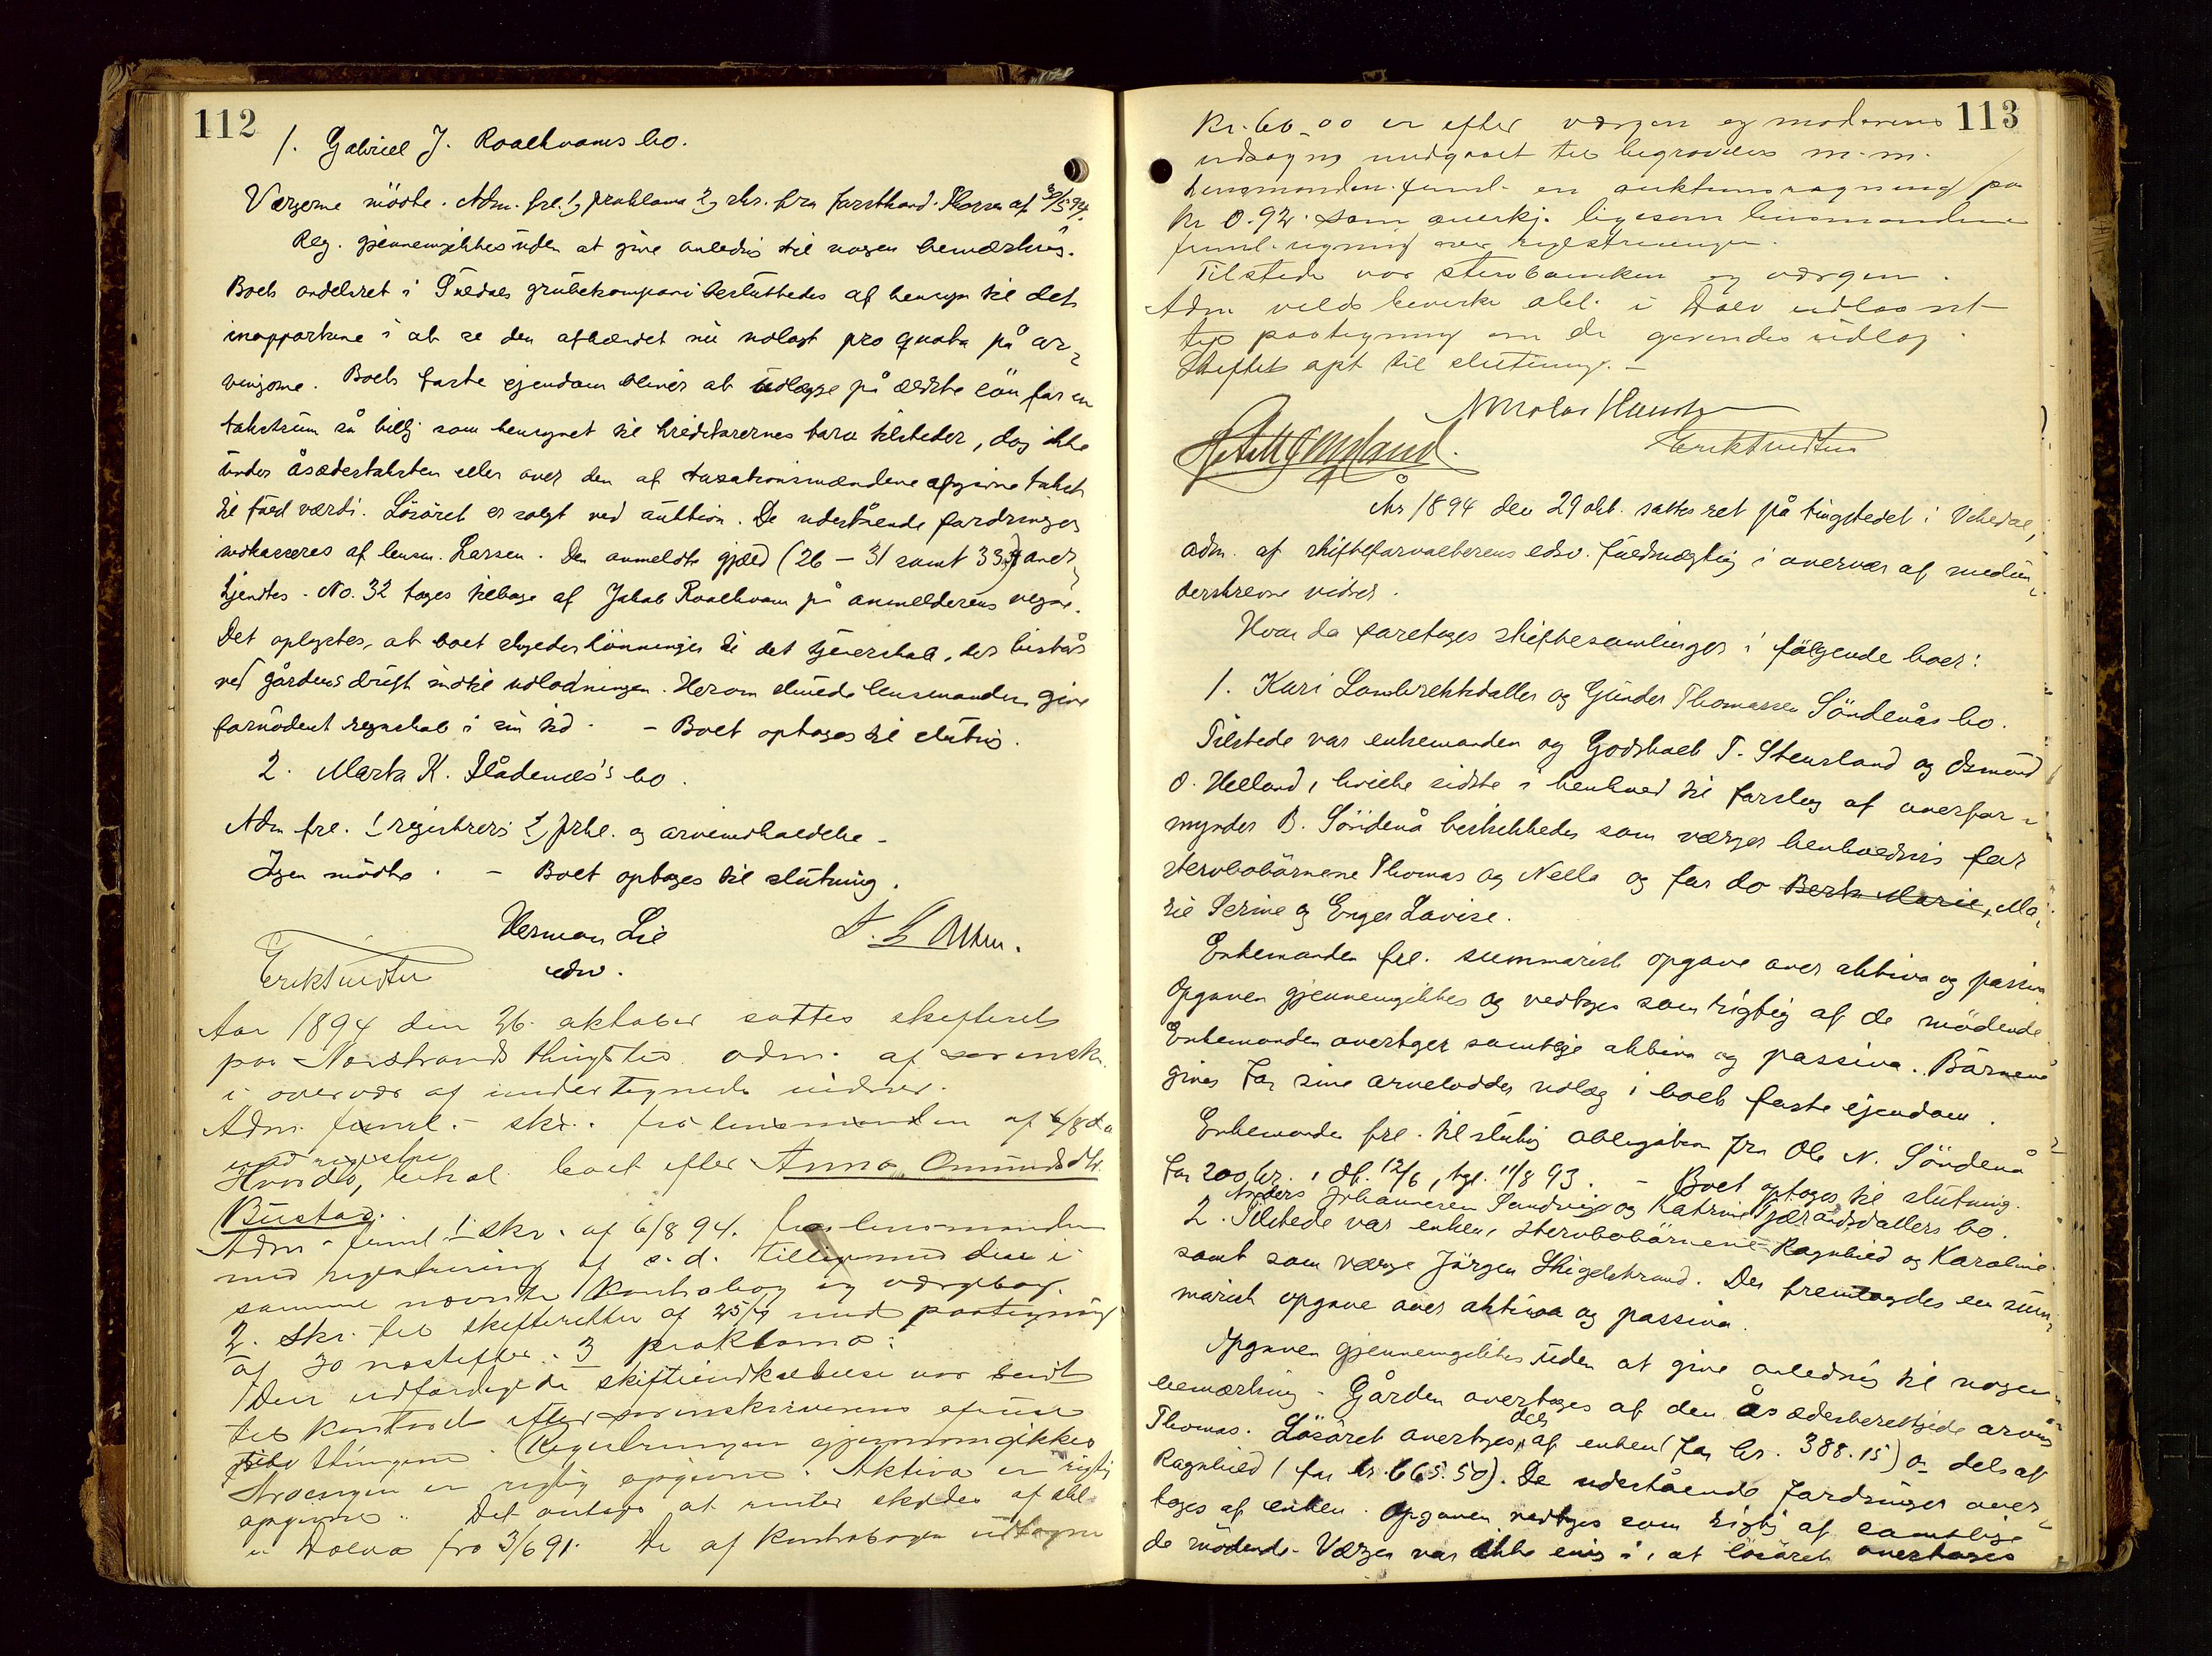 112
1. Gabriel J. Roaldkvams bo.
Værgerne mödte. Adm. frl. 1) proklama 2) skr. fra forsthand. af 30/5 94.
Reg. gjennemgikkes uden at give anledng til nogen bemærkng.
Boets andelsret i Suldals grubekompani besluttedes af hensyn til det
inopportune i at se den afhændet nu udlagt pro quota på ar-
vingerne. Boets faste ejendom bliver at udlægge på ældste sön for en
takstsum så billig som hensynet til kreditorernes tarv tilsteder, dog ikke
under åsædestaksten eller over den af taxationsmændene afgivne takst
til fuld værdi. Lösöret er solgt ved auktion. De udestående fordringer
indkasseres af lensm. Larsen. Den anmeldte gjæld (26 – 31 samt 33) aner-
kjendtes. No. 32 toges tilbage af Jakob Roaldkvam på anmelderens vegne.
Det oplystes, at boet skyder lönninger til det tjenerskab, der bistår
ved gårdens drift indtil udlodningen. Herom skulde lensmanden give
fornödent regnskab i sin tid. – Boet optages til slutng.
2. Marta K. Flådenæs's bo.
Adm frl. 1) registrerg 2) prkl. og arveindkaldelse –
Ingen mödte. – Boet optoges til slutning.
Herman Lie
edsv.
Erik Knudsen
Aar 1894 den 26. oktober sattes skifteret
paa Nerstrands thingsted adm. af sorenskr.
i overvær af undertegnede vidner.
Adm. freml. – skr. fra lensmanden af 6/8 d.a
med registre
Hvorda, behdl. boet efter Anna Omundsdtr.
Bustad.
Adm. freml. 1 skr. af 6/8 94. fra lensmanden
med registrering af s. d. tilligemed den i
samme nævnte kontrabog og værgebog.
2. Skr. til skifteretten af 25/9 med paategning
af 30 næstefter. 3 proklama:
Den udfærdigede skifteindkaldelse var sendt
til kontoret efter sorenskriverens afreise
til thingene. Registreringen gjennomgikkes
Arvengen er rigtig opgivne. Aktiva er rigtig
opgivne. Det antages at renter skyldes af obl
fra 3/6 91. De af kontrabogen udtagne
113
Kr. 60.00 er efter værgen og moderens
udsagn medgaaet til begravelse m.m.
Lensmanden freml. en auktionsregning paa
kr 0.92. som anerkj. ligesom lensmandens
freml. regning over registreringen.
Tilstede var sterbænken og værgen.
Adm vilde bevirke obl. i udlaant
til paategning om de givende udlæg.
Skiftet opt til slutning. –
Nikolai Hansen
Erik Knudsen
År 1894 den 29 okt. sattes ret på tingstedet i Vikedal,
adm. af skifteforvalterens edsv. fuldmægtig i overvær af medun-
derskrevne vidner.
Hvor da foretoges skiftesamlinger i fölgende boer:
1. Kari Lambrektsdatter og Gunder Thomassen Söndenås bo.
Tilstede var enkemanden og Godskalk T. Stensland og Osmund
O. Helland, hvilke sidste i henhold til forslag af overfor-
mynder B. Söndenå beskikkedes som værger henholdsvis for
sterbobörnene Thomas og Nella og for do Berta Marie, Ma-
rie Serine og Enger Lovise.
Enkemanden frl. summarisk opgave over aktiva og passiva
Opgaven gjennemgikkes og vedtoges som rigtig af de mödende
Enkemanden overtager samtlige aktiva og passiva. Börnene
gives for sine arvelodder udlæg i boets faste ejendom.
Enkemanden frl. til slutng obligation fra Ole N. Söndenå
for 200 kr., dt. 12/6, tgl. 11/8 93. – Boet optoges til slutning.
2. Anders Johannesen Sandvigs og Katrine Tjerandsdatters bo.
Tilstede var enken, sterbobörnene Ragnhild og Karoline
samt som værge Jörgen Skigelstrand. Der fremlagdes en sum-
marisk opgave over aktiva og passiva.
Opgaven gjennemgikkes uden at give anledng til nogen
bemærkng. Gården overtages af den åsædesberettigede arving
Thomas. Lösöret overtages dels af enken (for kr. 388.15) og dels af
Ragnhild (for kr. 665.50). De udestående fordringer over-
tages af enken. Opgaven vedtoges som rigtig af samtlige
de mödende. Værgen var ikke enig i, at lösöret overtages